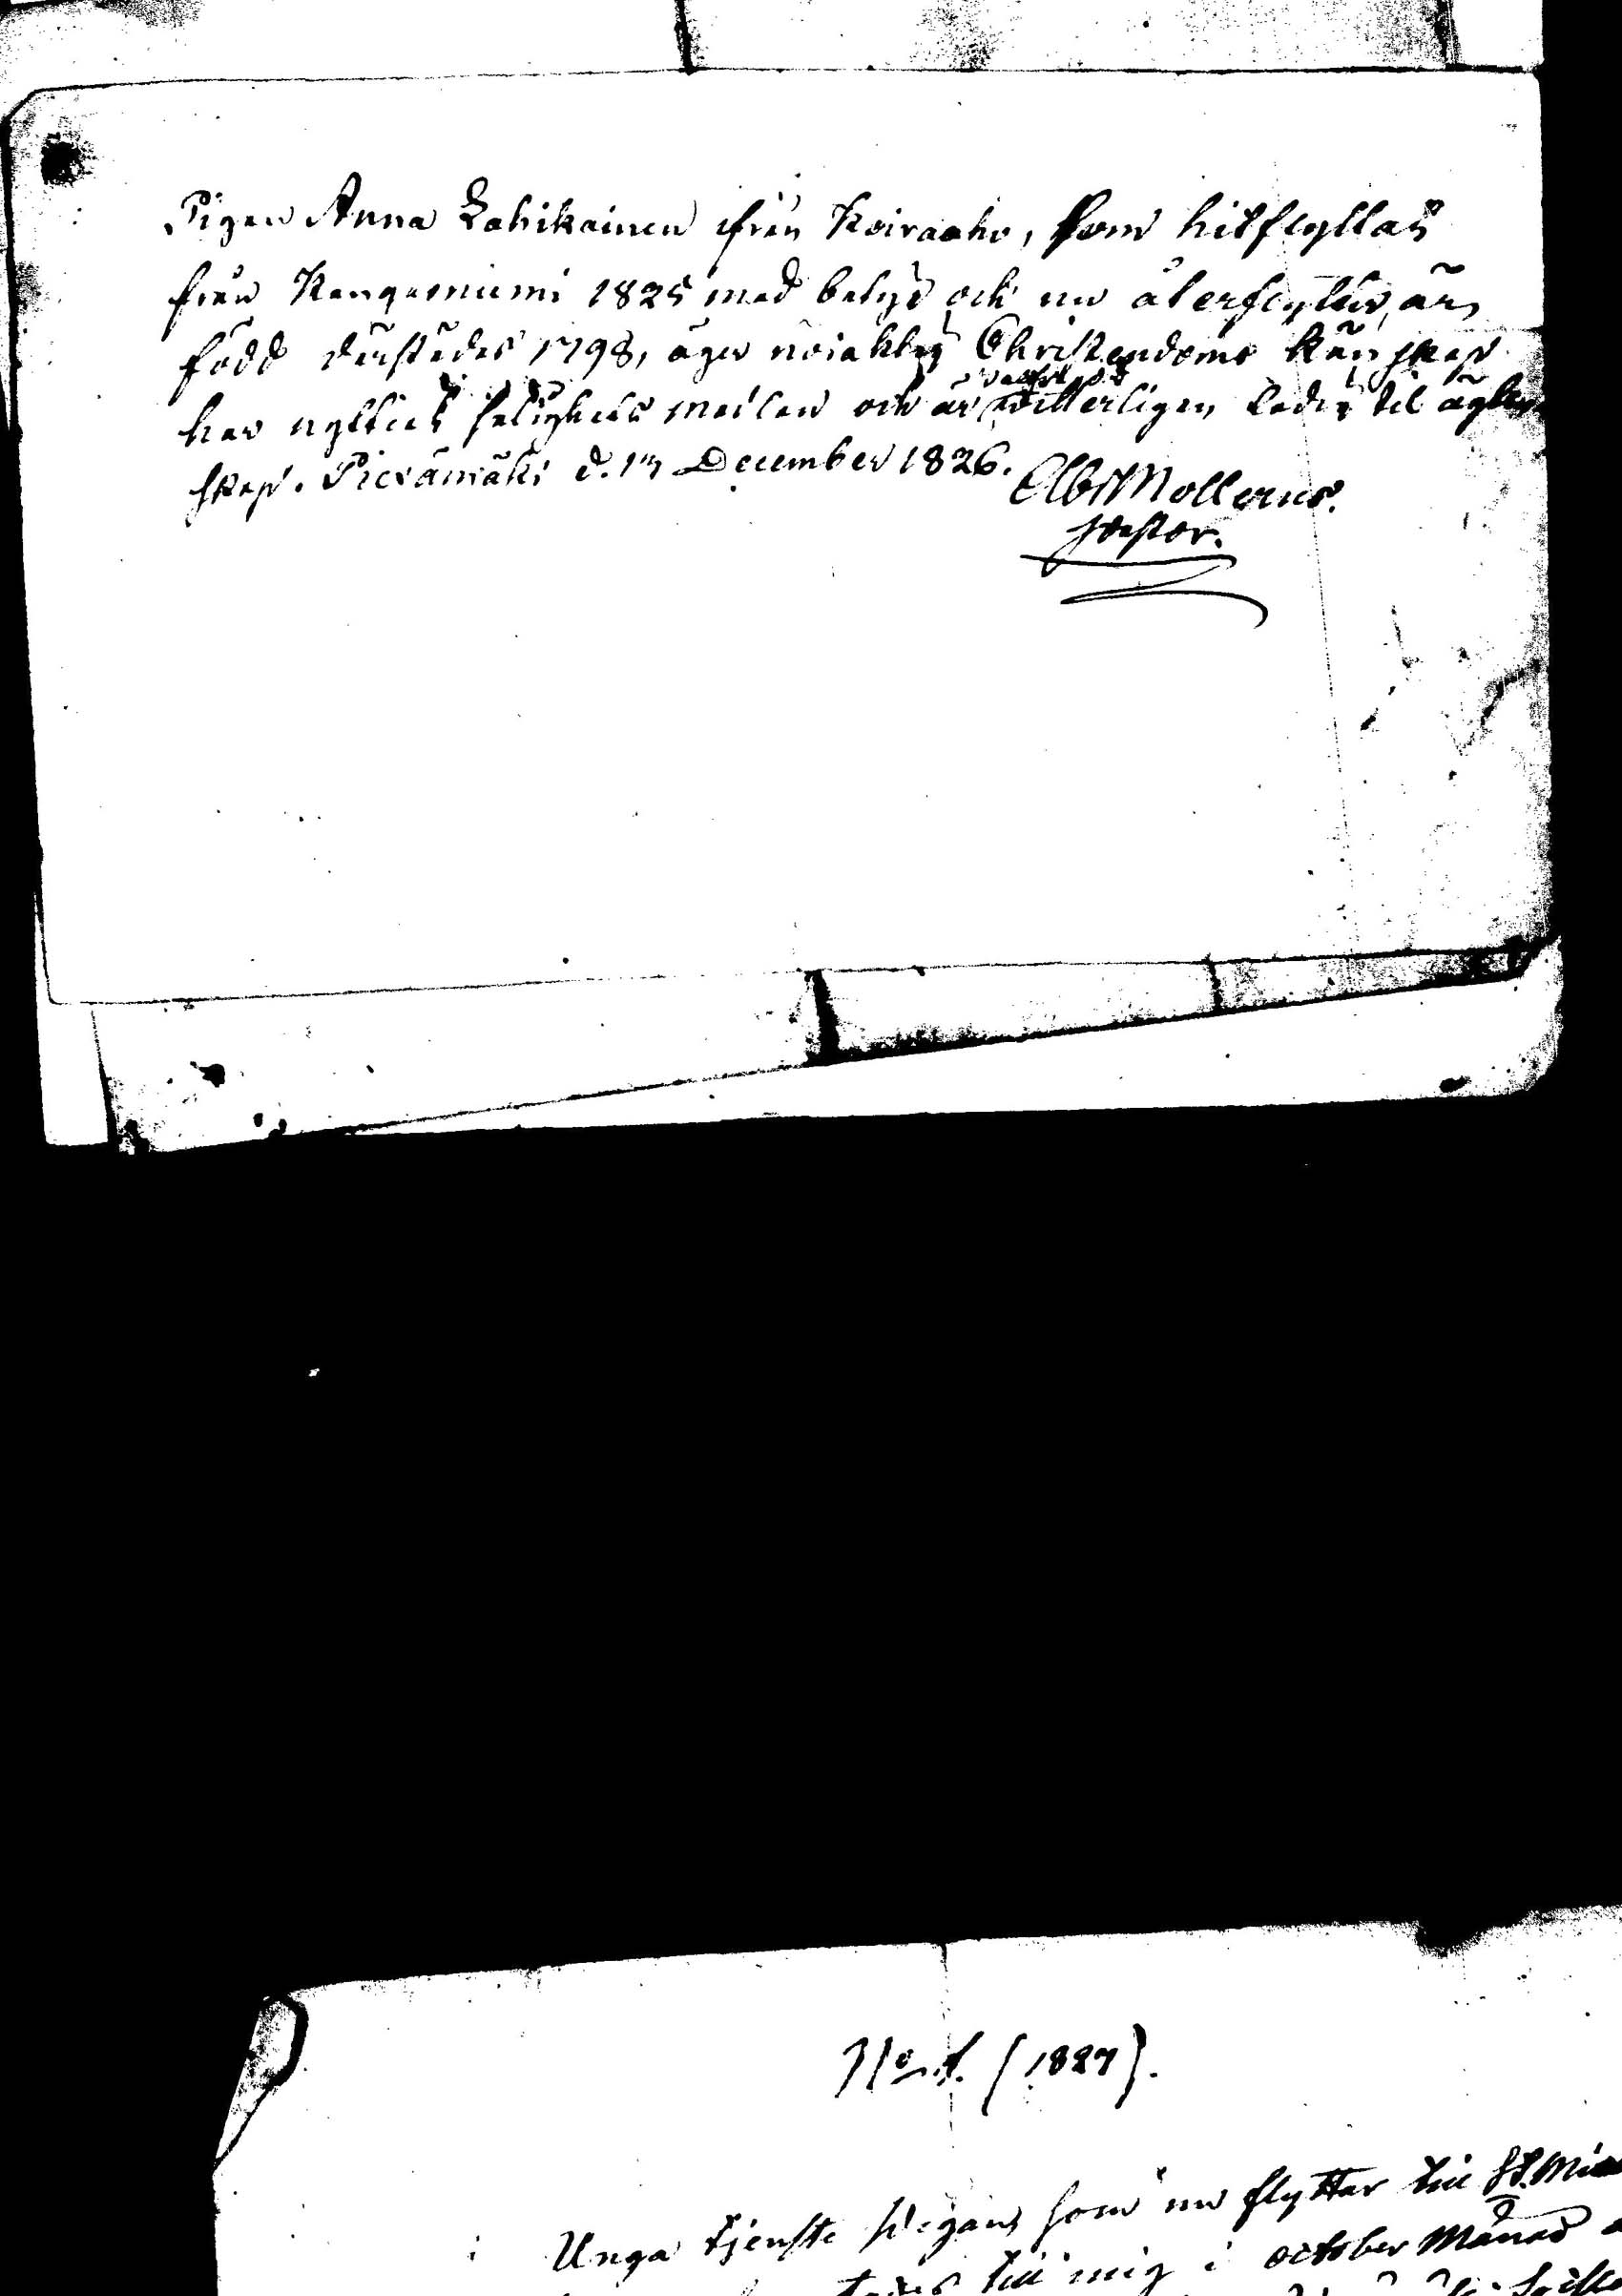 Pigan Anna Lahikainen från Koiraaho, som hitflyttat
från Kangasniemi 1825 med betyg och nu återflyttar, är
född derstädes 1798, äger nöjaktig Christendoms kunskap
har nyttjat salighets medlen och är witterligen ledig til ägten
skap. Piexämäki d. 13 December 1826.
Alb Mollerus.
pastor.
No 1. (1827).
Unga tjenste pigan som nu flyttar till St. Mi
till mig i october Månad